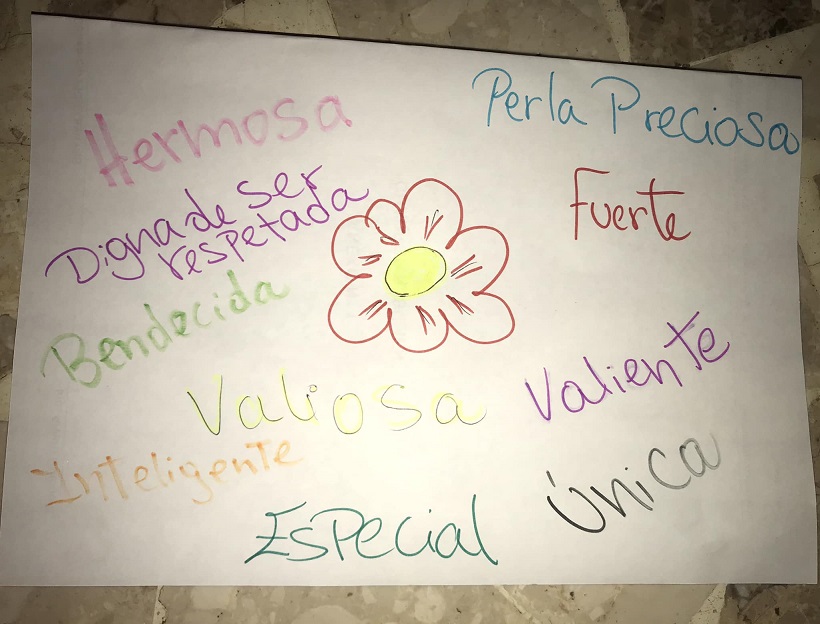 Hermosa
Perla Preciosa
Digna de ser
respetada
Fuerte
Bendecida
Valiosa
Valiente
Inteligente
Única
Especial